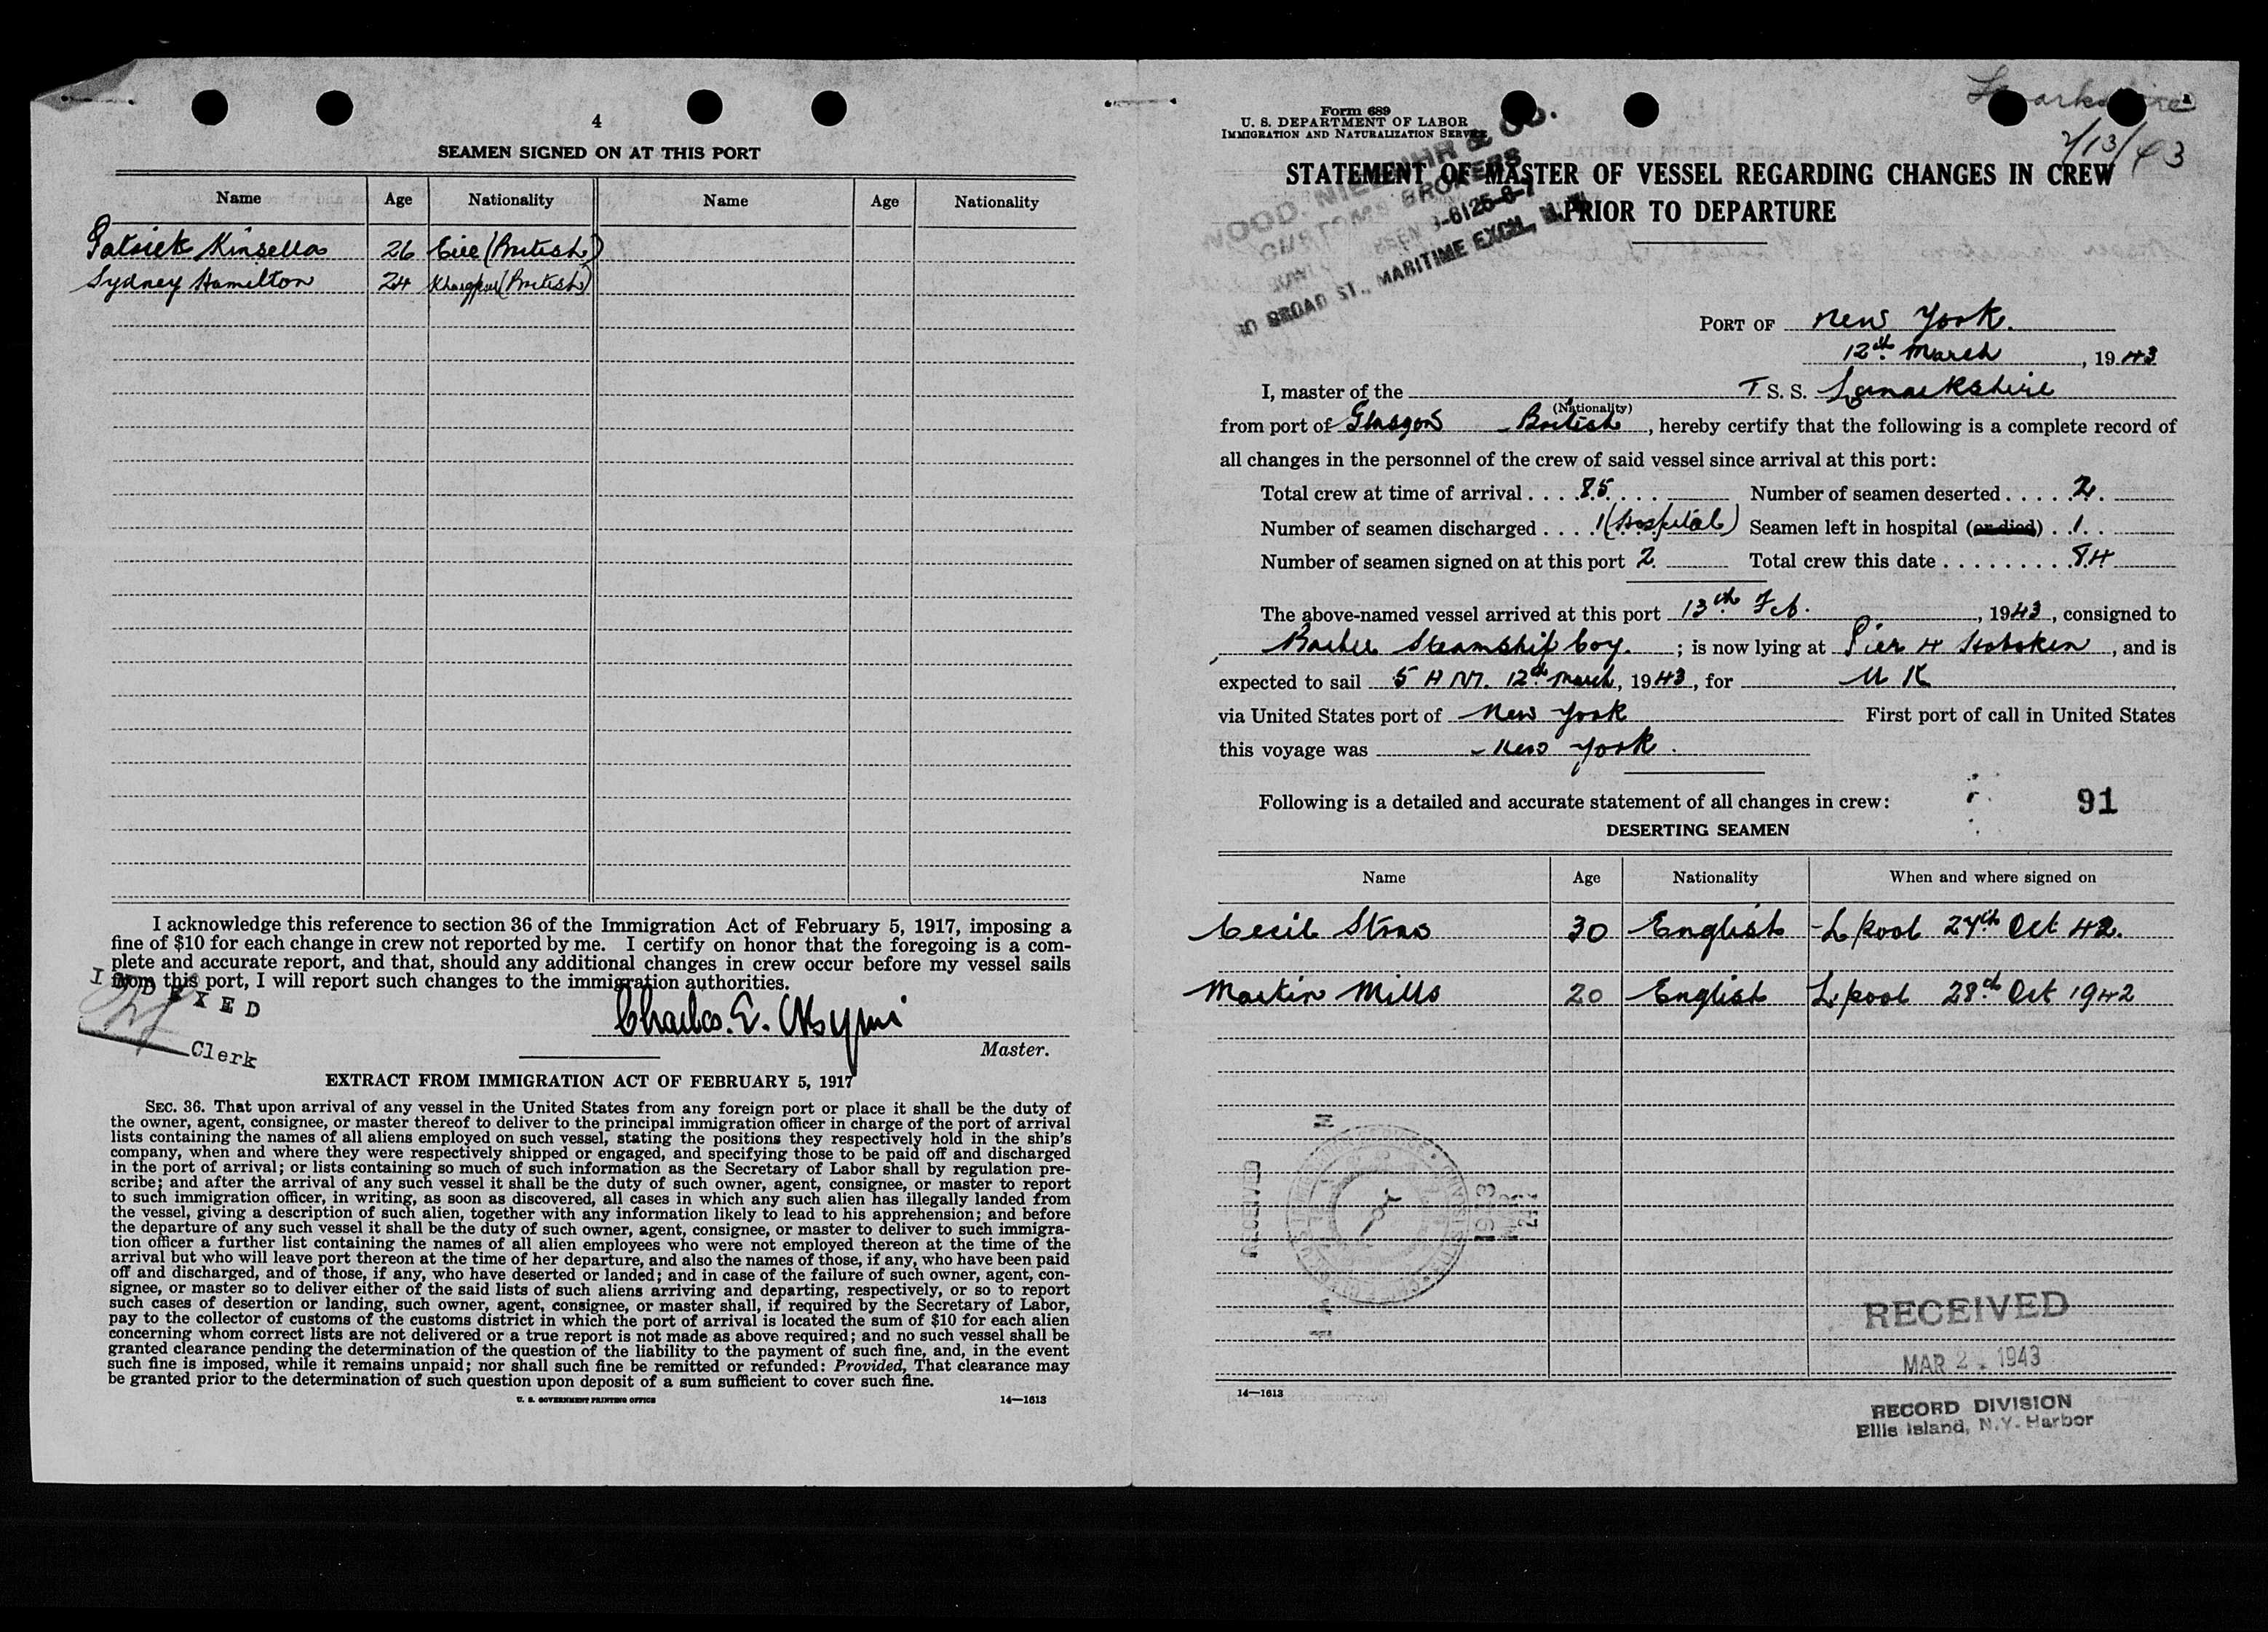 4
SEAMEN SIGNED ON AT THIS PORT
Name Age Nationality Name Age Nationality
Patrick Kinsella 26 Eire (British)
Sydney Hamilton 24 Kharagpur (British)
I acknowledge this reference to section 36 of the Immigration Act of February 5, 1917, imposing a
fine of $10 for each change in crew not reported by me. I certify on honor that the foregoing is a com-
plete and accurate report, and that, should any additional changes in crew occur before my vessel sails
from this port, I will report such changes to the immigration authorities.
INDEXED
Charles. E.
Clerk
Master.
EXTRACT FROM IMMIGRATION ACT OF FEBRUARY 5, 1917
SEC. 36. That upon arrival of any vessel in the United States from any foreign port or place it shall be the duty of
the owner, agent, consignee, or master thereof to deliver to the principal immigration officer in charge of the port of arrival
lists containing the names of all aliens employed on such vessel, stating the positions they respectively hold in the ship's
company, when and where they were respectively shipped or engaged, and specifying those to be paid off and discharged
in the port of arrival; or lists containing so much of such information as the Secretary of Labor shall by regulation pre-
scribe; and after the arrival of any such vessel it shall be the duty of such owner, agent, consignee, or master to report
to such immigration officer, in writing, as soon as discovered, all cases in which any such alien has illegally landed from
the vessel, giving a description of such alien, together with any information likely to lead to his apprehension; and before
the departure of any such vessel it shall be the duty of such owner, agent, consignee, or master to deliver to such immigra-
tion officer a further list containing the names of all alien employees who were not employed thereon at the time of the
arrival but who will leave port thereon at the time of her departure, and also the names of those, if any, who have been paid
off and discharged, and of those, if any, who have deserted or landed; and in case of the failure of such owner, agent, con-
signee, or master so to deliver either of the said lists of such aliens arriving and departing, respectively, or so to report
such cases of desertion or landing, such owner, agent, consignee, or master shall, if required by the Secretary of Labor,
pay to the collector of customs of the customs district in which the port of arrival is located the sum of $10 for each alien
concerning whom correct lists are not delivered or a true report is not made as above required; and no such vessel shall be
granted clearance pending the determination of the question of the liability to the payment of such fine, and, in the event
such fine is imposed, while it remains unpaid; nor shall such fine be remitted or refunded: Provided, That clearance may
be granted prior to the determination of such question upon deposit of a sum sufficient to cover such fine.
U. S. GOVERNMENT PRINTING OFFICE 14—1613
Form 689
U. S. DEPARTMENT OF LABOR
IMMIGRATION AND NATURALIZATION SERVICE
2/13/43
STATEMENT OF MASTER OF VESSEL REGARDING CHANGES IN CREW
PRIOR TO DEPARTURE
CUSTOMS BROKERS
BROAD ST., MARITIME EXCH, N.Y.
PORT OF New York.
12th March, 1943
I, master of the T S. S. Lanarkshire
(Nationality)
from port of Glasgow British, hereby certify that the following is a complete record of
all changes in the personnel of the crew of said vessel since arrival at this port:
Total crew at time of arrival . . . . 85 . . . . Number of seamen deserted . . . . . 2.
Number of seamen discharged . . . . 1 (Hospital) Seamen left in hospital (or died) . . 1.
Number of seamen signed on at this port 2. Total crew this date . . . . . . . . . 84
The above-named vessel arrived at this port 13th Feb., 1943, consigned to
Barber Steamship Coy. ; is now lying at Pier 4 Hoboken, and is
expected to sail 5 AM. 12th March, 1943, for U K
via United States port of New York First port of call in United States
this voyage was New York.
Following is a detailed and accurate statement of all changes in crew: 91
DESERTING SEAMEN
Name Age Nationality When and where signed on
Cecil 30 English L'pool 27th Oct 42.
Martin Mills 20 English L'pool 28th Oct 1942
RECEIVED
1943
RECEIVED
MAR 2 1943
14—1613
RECORD DIVISION
Ellis Island, N.Y. Harbor